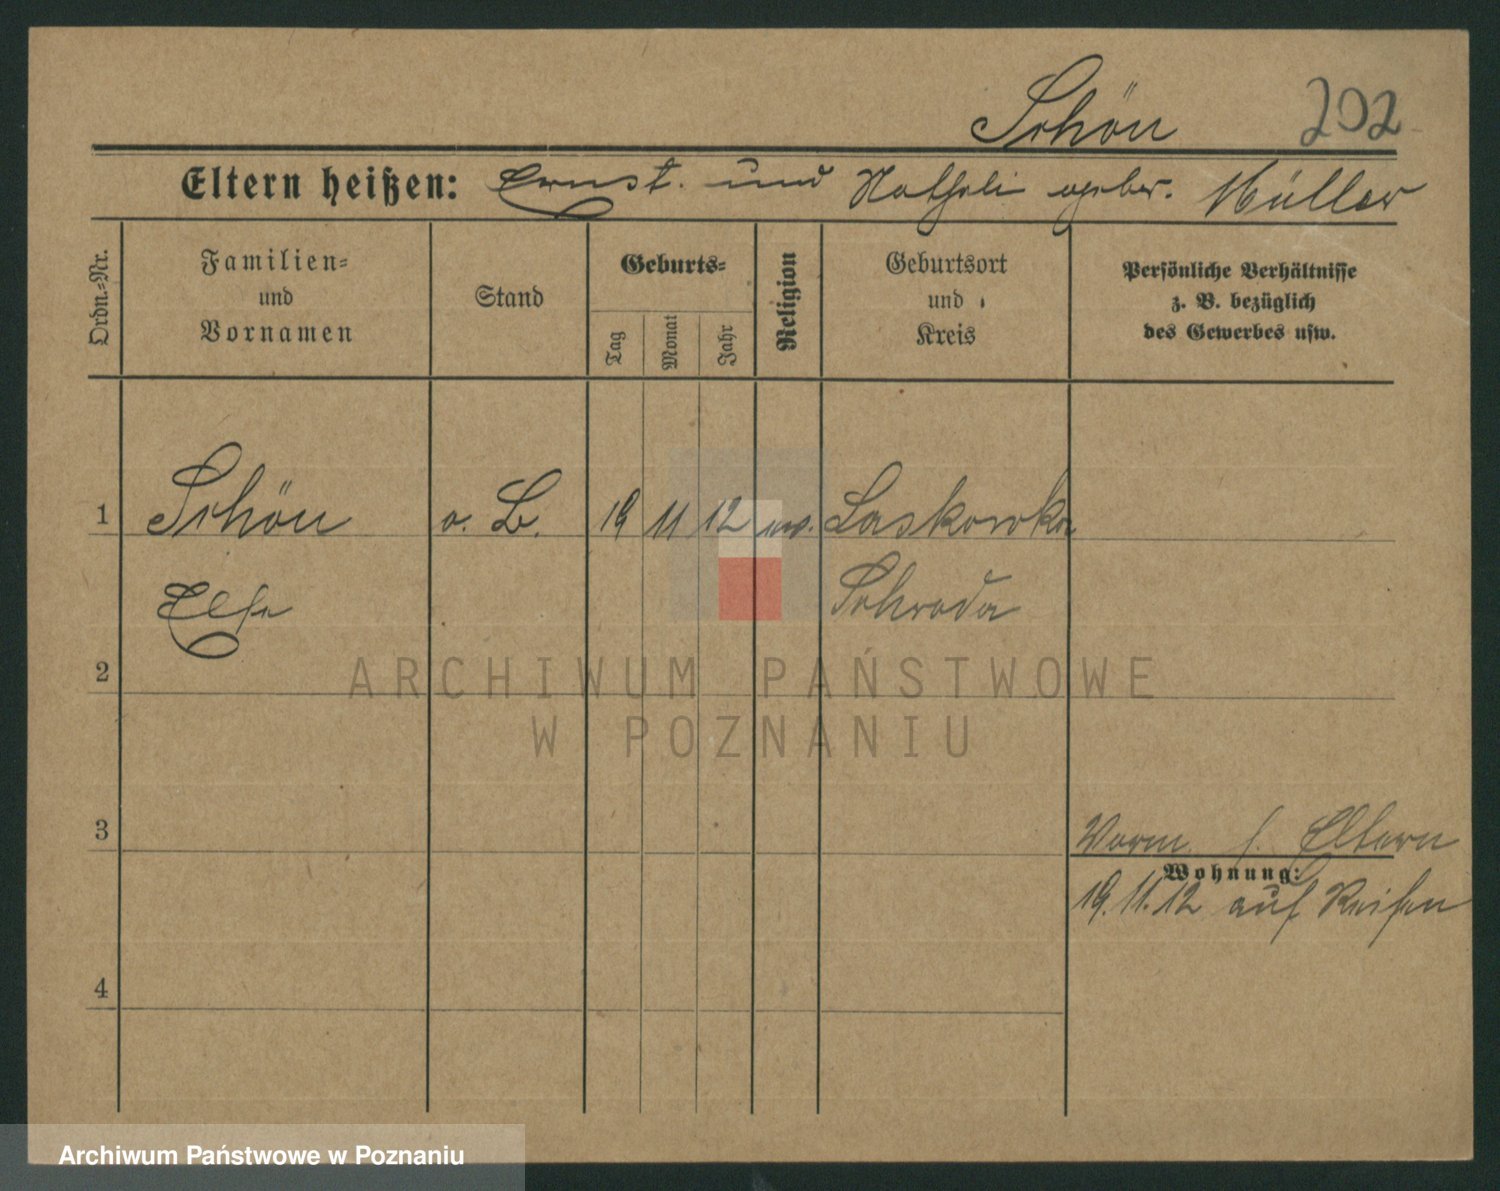 Schön 202
Eltern heißen: Ernst. und Natheli geber. Müller
Ordn.=Nr.
Familien=
und
Vornamen
Stand
Geburts=
Tag
Monat
Jahr
Religion
Geburtsort
und
Kreis
Persönliche Verhältnisse
z. B. bezüglich
des Gewerbes usw.
1 Schön o. B. 19 11 12 ev. Laskowka
Else Schroda
2
ARCHIWUM PAŃSTWOWE
W POZNANIU
3
Verm. s. Eltern
Wohnung:
19.11.12 auf Reisen
4
Archiwum Państwowe w Poznaniu